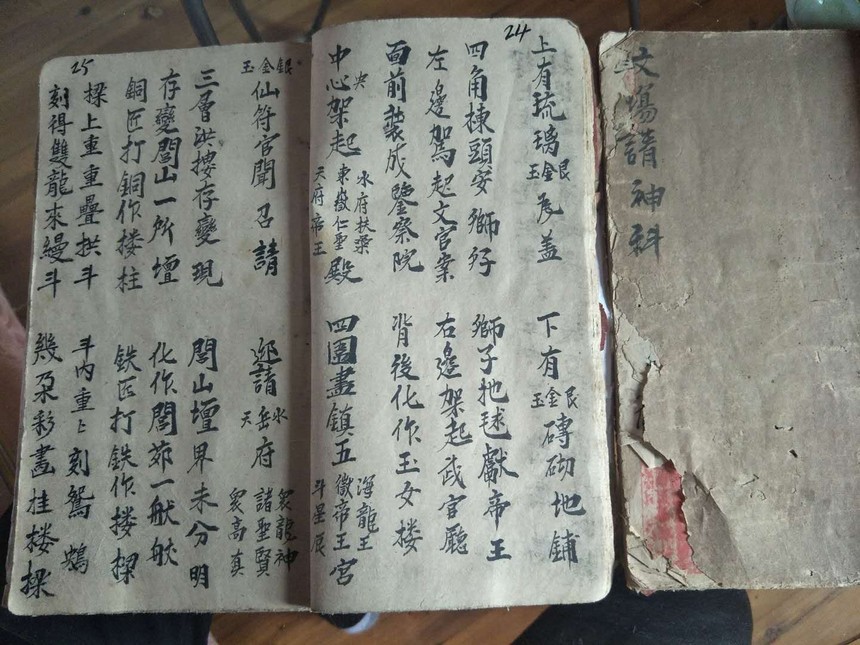 文塲請神科
24
上有琉璃玉金艮為盖 下有玉金艮磚砌地鋪
四角棟頭安獅 獅子毬獻帝王
左邊駕起文官案 右邉架起武官廳
面前裝成鑒察院 背後化作玉女楼
中心央架起水府扶桑東嶽仁聖天府帝王殿 四圍畫鎮五海龍王徽帝王斗星辰宮
25
玉金銀仙符官聞召請 迎請天岳水府衆龍神諸聖賢衆高真
三層洪摟存變現 閭山壇界未分明
存變閭山一所壇 化作閭茆一般般
銅匠打銅作楼柱 鉄匠打鉄作摟樑
樑上重重疊拱斗 斗内重〻刻鴛鴦
刻得雙龍來縵斗 幾朶彩畫挂楼樑